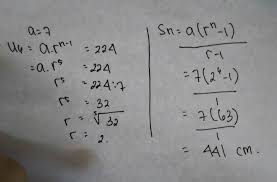 a = 7
U₆ = a.rⁿ⁻¹ = 224
= a.r⁵ = 224
r⁵ = 224:7
r⁵ = 32
r = ⁵√32
r = 2.
Sn = a(rⁿ-1)
r-1
= 7(2⁶-1)
1
= 7(63)
1
= 441 cm.